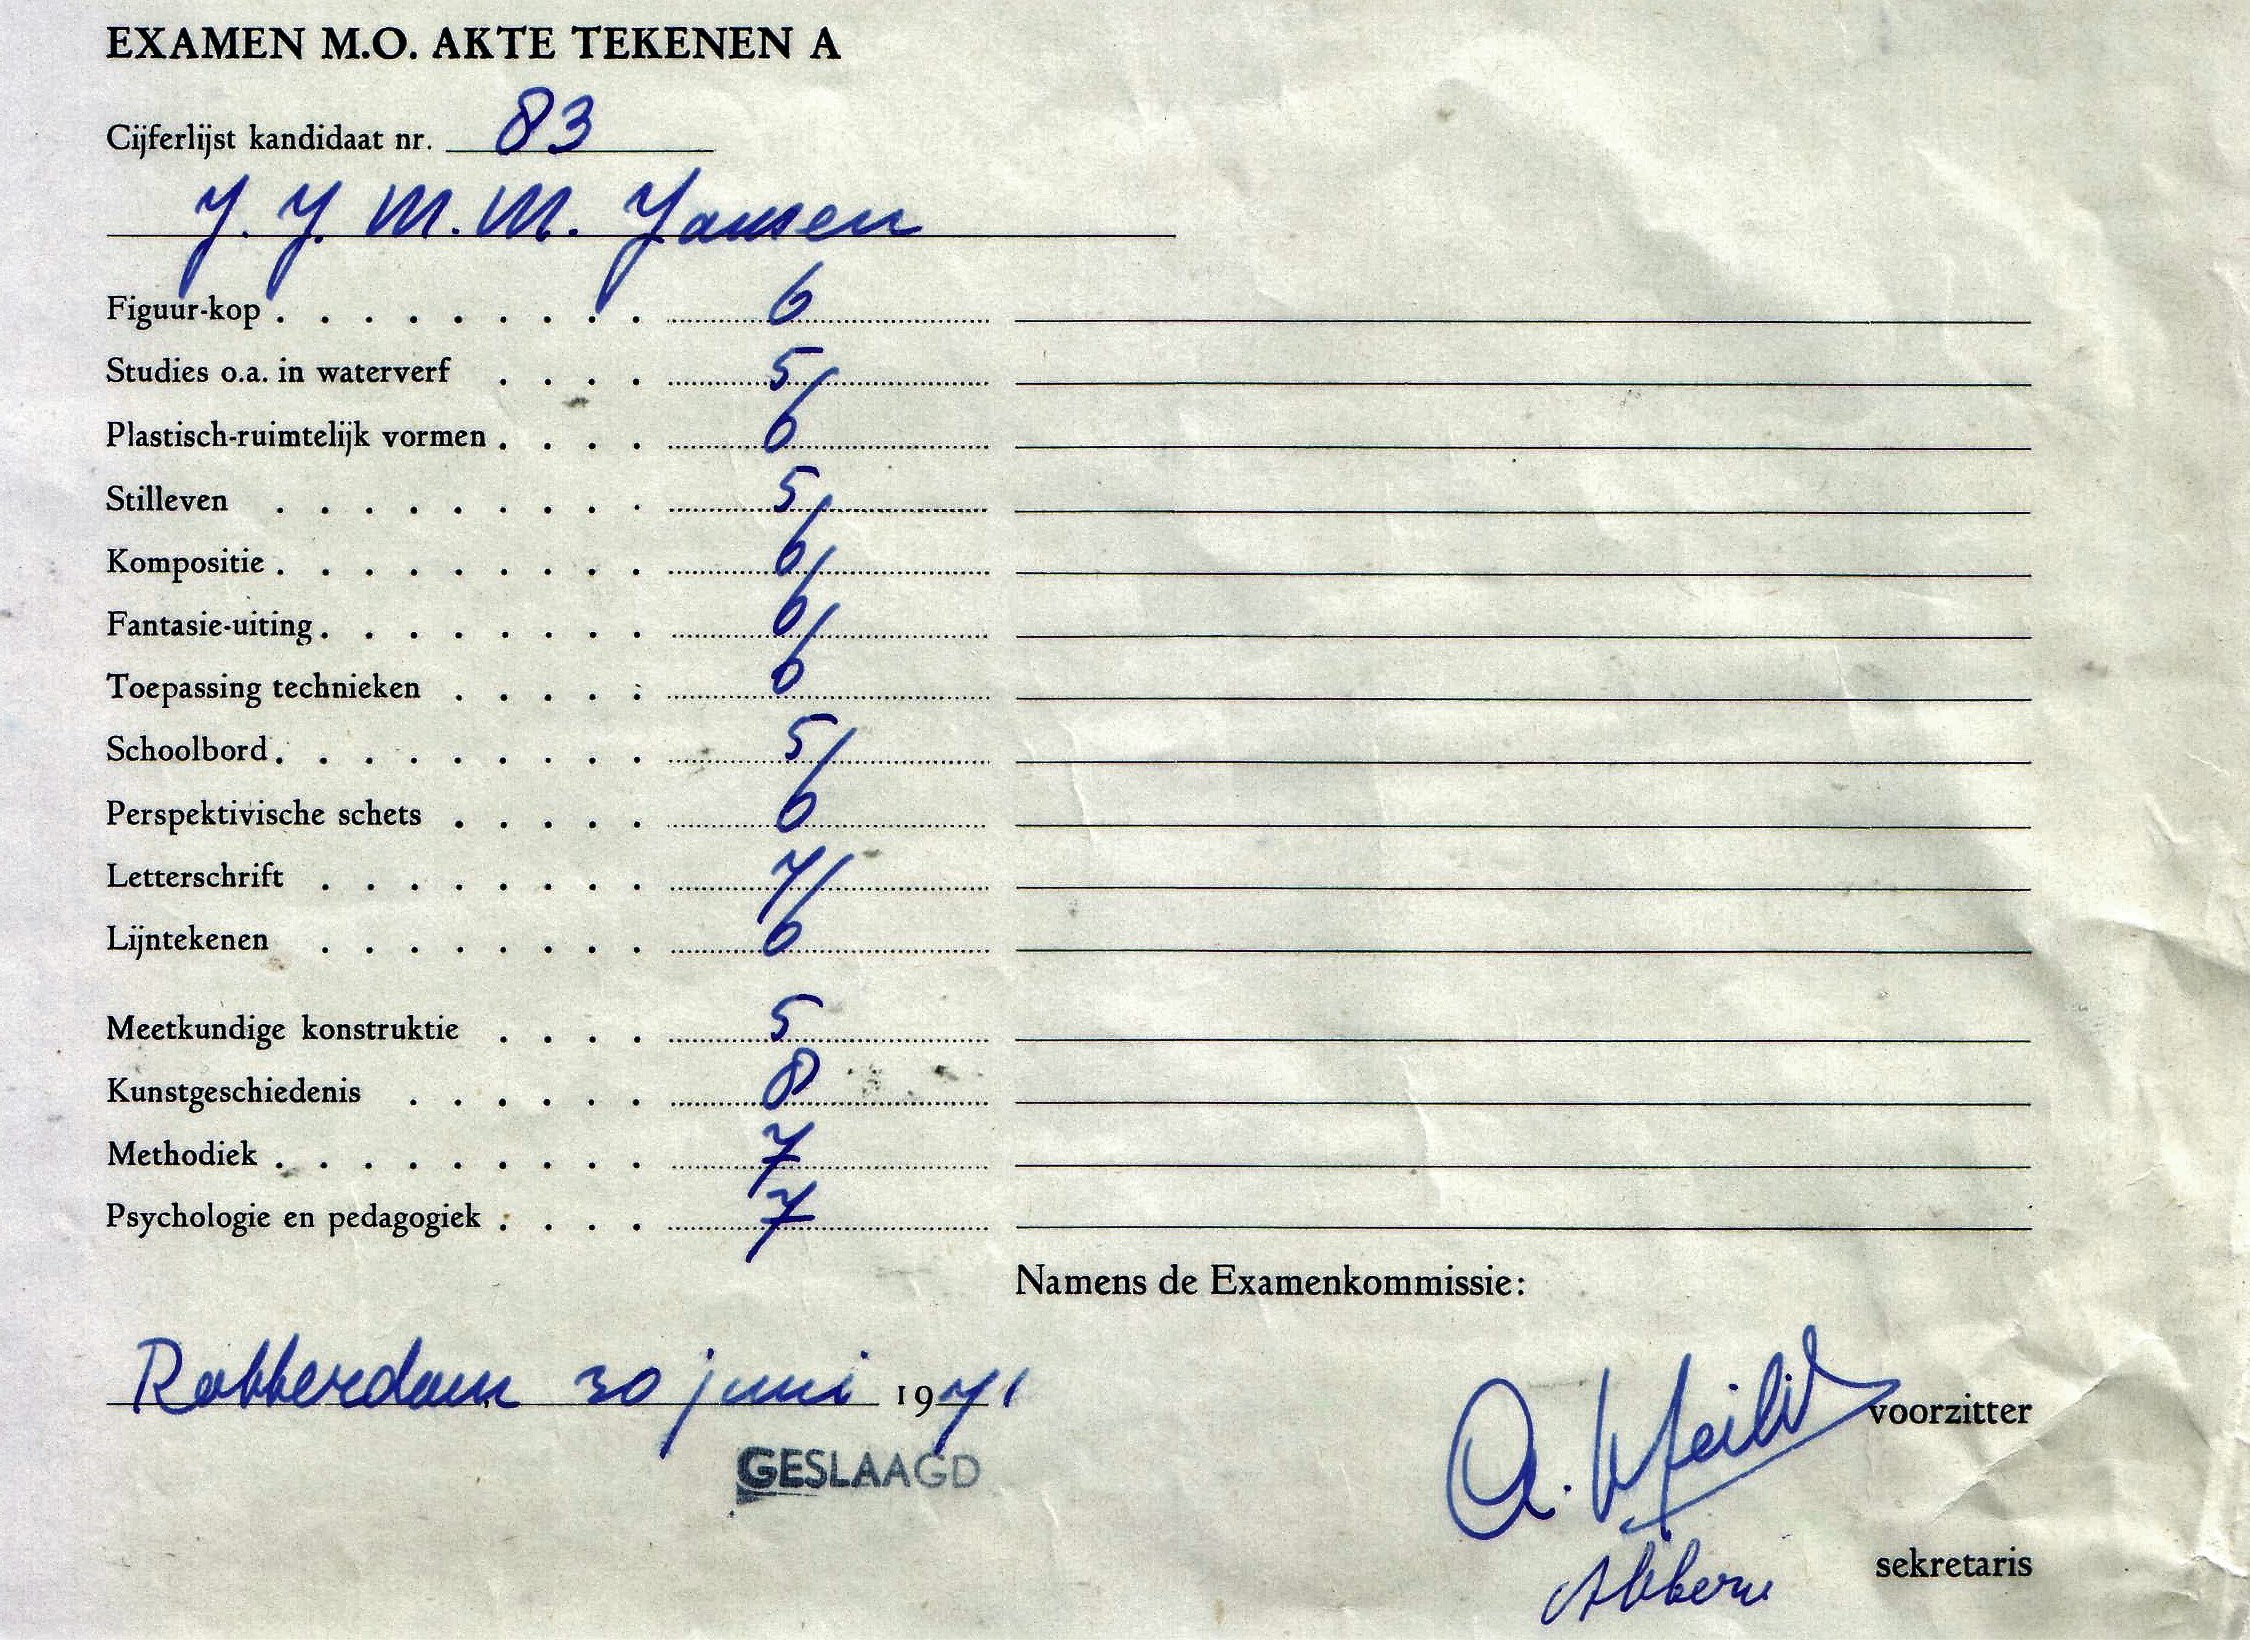 EXAMEN M.O. AKTE TEKENEN A
Cijferlijst kandidaat nr. 83
J. J. M. M. Jansen
Figuur-kop . . . . . . . . . 6
Studies o.a. in waterverf . . . . 5
Plastisch-ruimtelijk vormen . . . . 6
Stilleven . . . . . . . . . 5
Kompositie . . . . . . . . . 6
Fantasie-uiting . . . . . . . . 6
Toepassing technieken . . . . . 6
Schoolbord . . . . . . . . . 5
Perspektivische schets . . . . . 6
Letterschrift . . . . . . . . 7
Lijntekenen . . . . . . . . 6
Meetkundige konstruktie . . . . 5
Kunstgeschiedenis . . . . . . 8
Methodiek . . . . . . . . . 7
Psychologie en pedagogiek . . . . 7
Namens de Examenkommissie:
Rotterdam 30 juni 1971
voorzitter
GESLAAGD
sekretaris